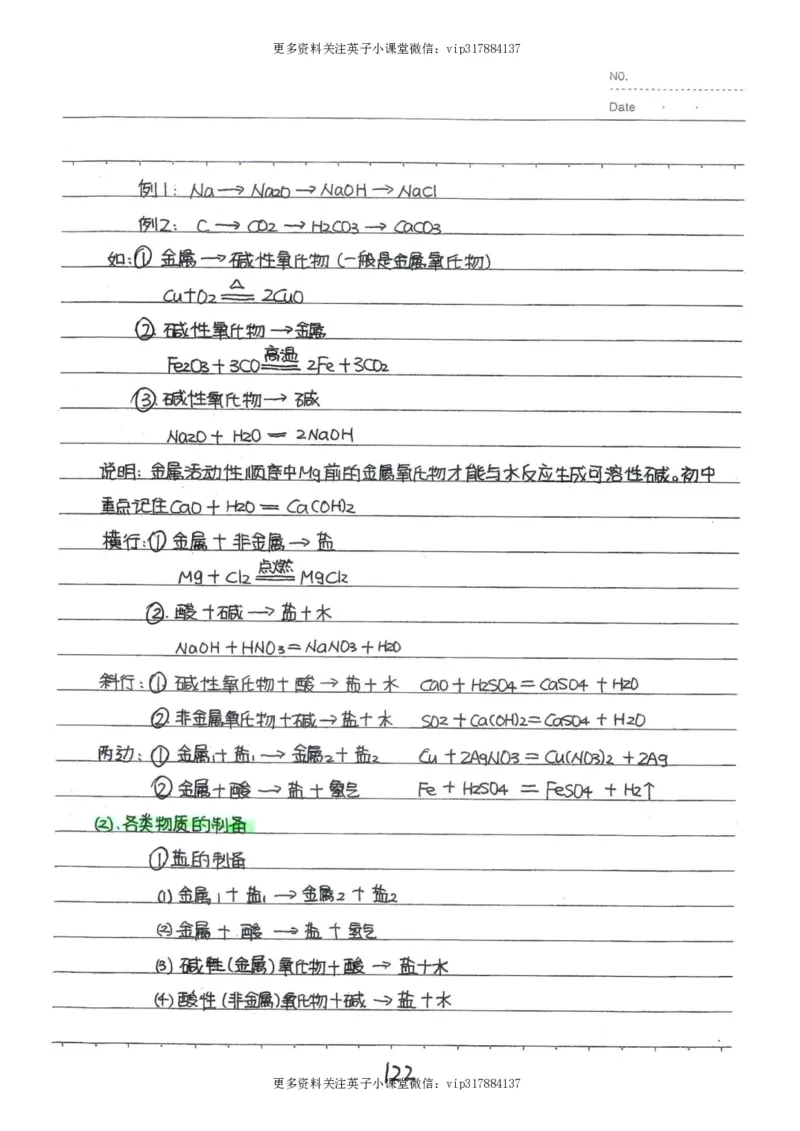 更多资料关注英子小课堂微信：vip317884137
NO.
Date
例1：Na→Na2O→NaOH→NaCl
例2：C→CO2→H2CO3→CaCO3
如：① 金属→碱性氧化物(一般是金属氧化物)
△
Cu+O2=2CuO
②.碱性氧化物→金属
高温
Fe2O3+3CO=2Fe+3CO2
③.碱性氧化物→碱
Na2O+H2O=2NaOH
说明：金属活动性顺序中Mg前的金属氧化物才能与水反应生成可溶性碱。初中
重点记住CaO+H2O=Ca(OH)2
横行：①金属+非金属→盐
点燃
Mg+Cl2=MgCl2
②.酸+碱→盐+水
NaOH+HNO3=NaNO3+H2O
斜行：①碱性氧化物+酸→盐+水 CaO+H2SO4=CaSO4+H2O
②非金属氧化物+碱→盐+水 SO2+Ca(OH)2=CaSO4+H2O
两边：①金属1+盐1→金属2+盐2 Cu+2AgNO3=Cu(NO3)2+2Ag
②金属+酸→盐+氢气 Fe+H2SO4=FeSO4+H2↑
(2).各类物质的制备
①盐的制备
(1)金属1+盐1→金属2+盐2
(2)金属+酸→盐+氢气
(3)碱性(金属)氧化物+酸→盐+水
(4)酸性(非金属)氧化物+碱→盐+水
122
更多资料关注英子小课堂微信：vip317884137